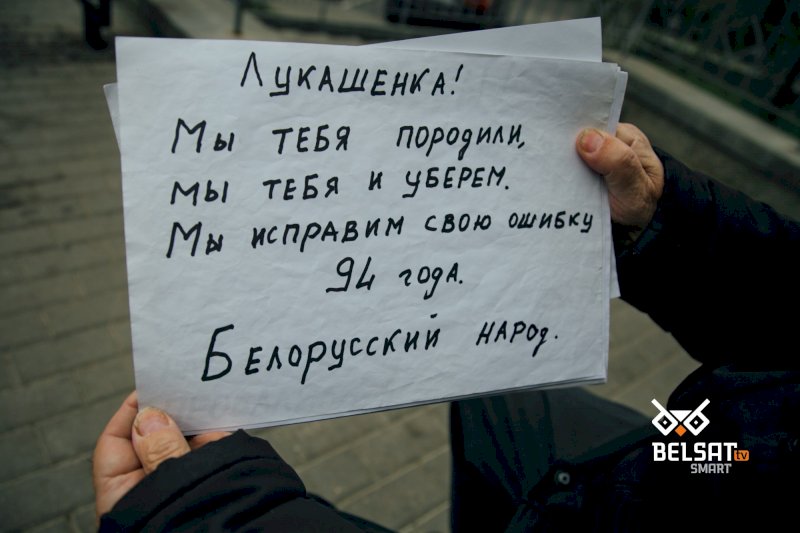 Лукашенка!
Мы тебя породили,
мы тебя и уберем.
Мы исправим свою ошибку
94 года.
Белорусский народ.
BELSAT tv
SMART